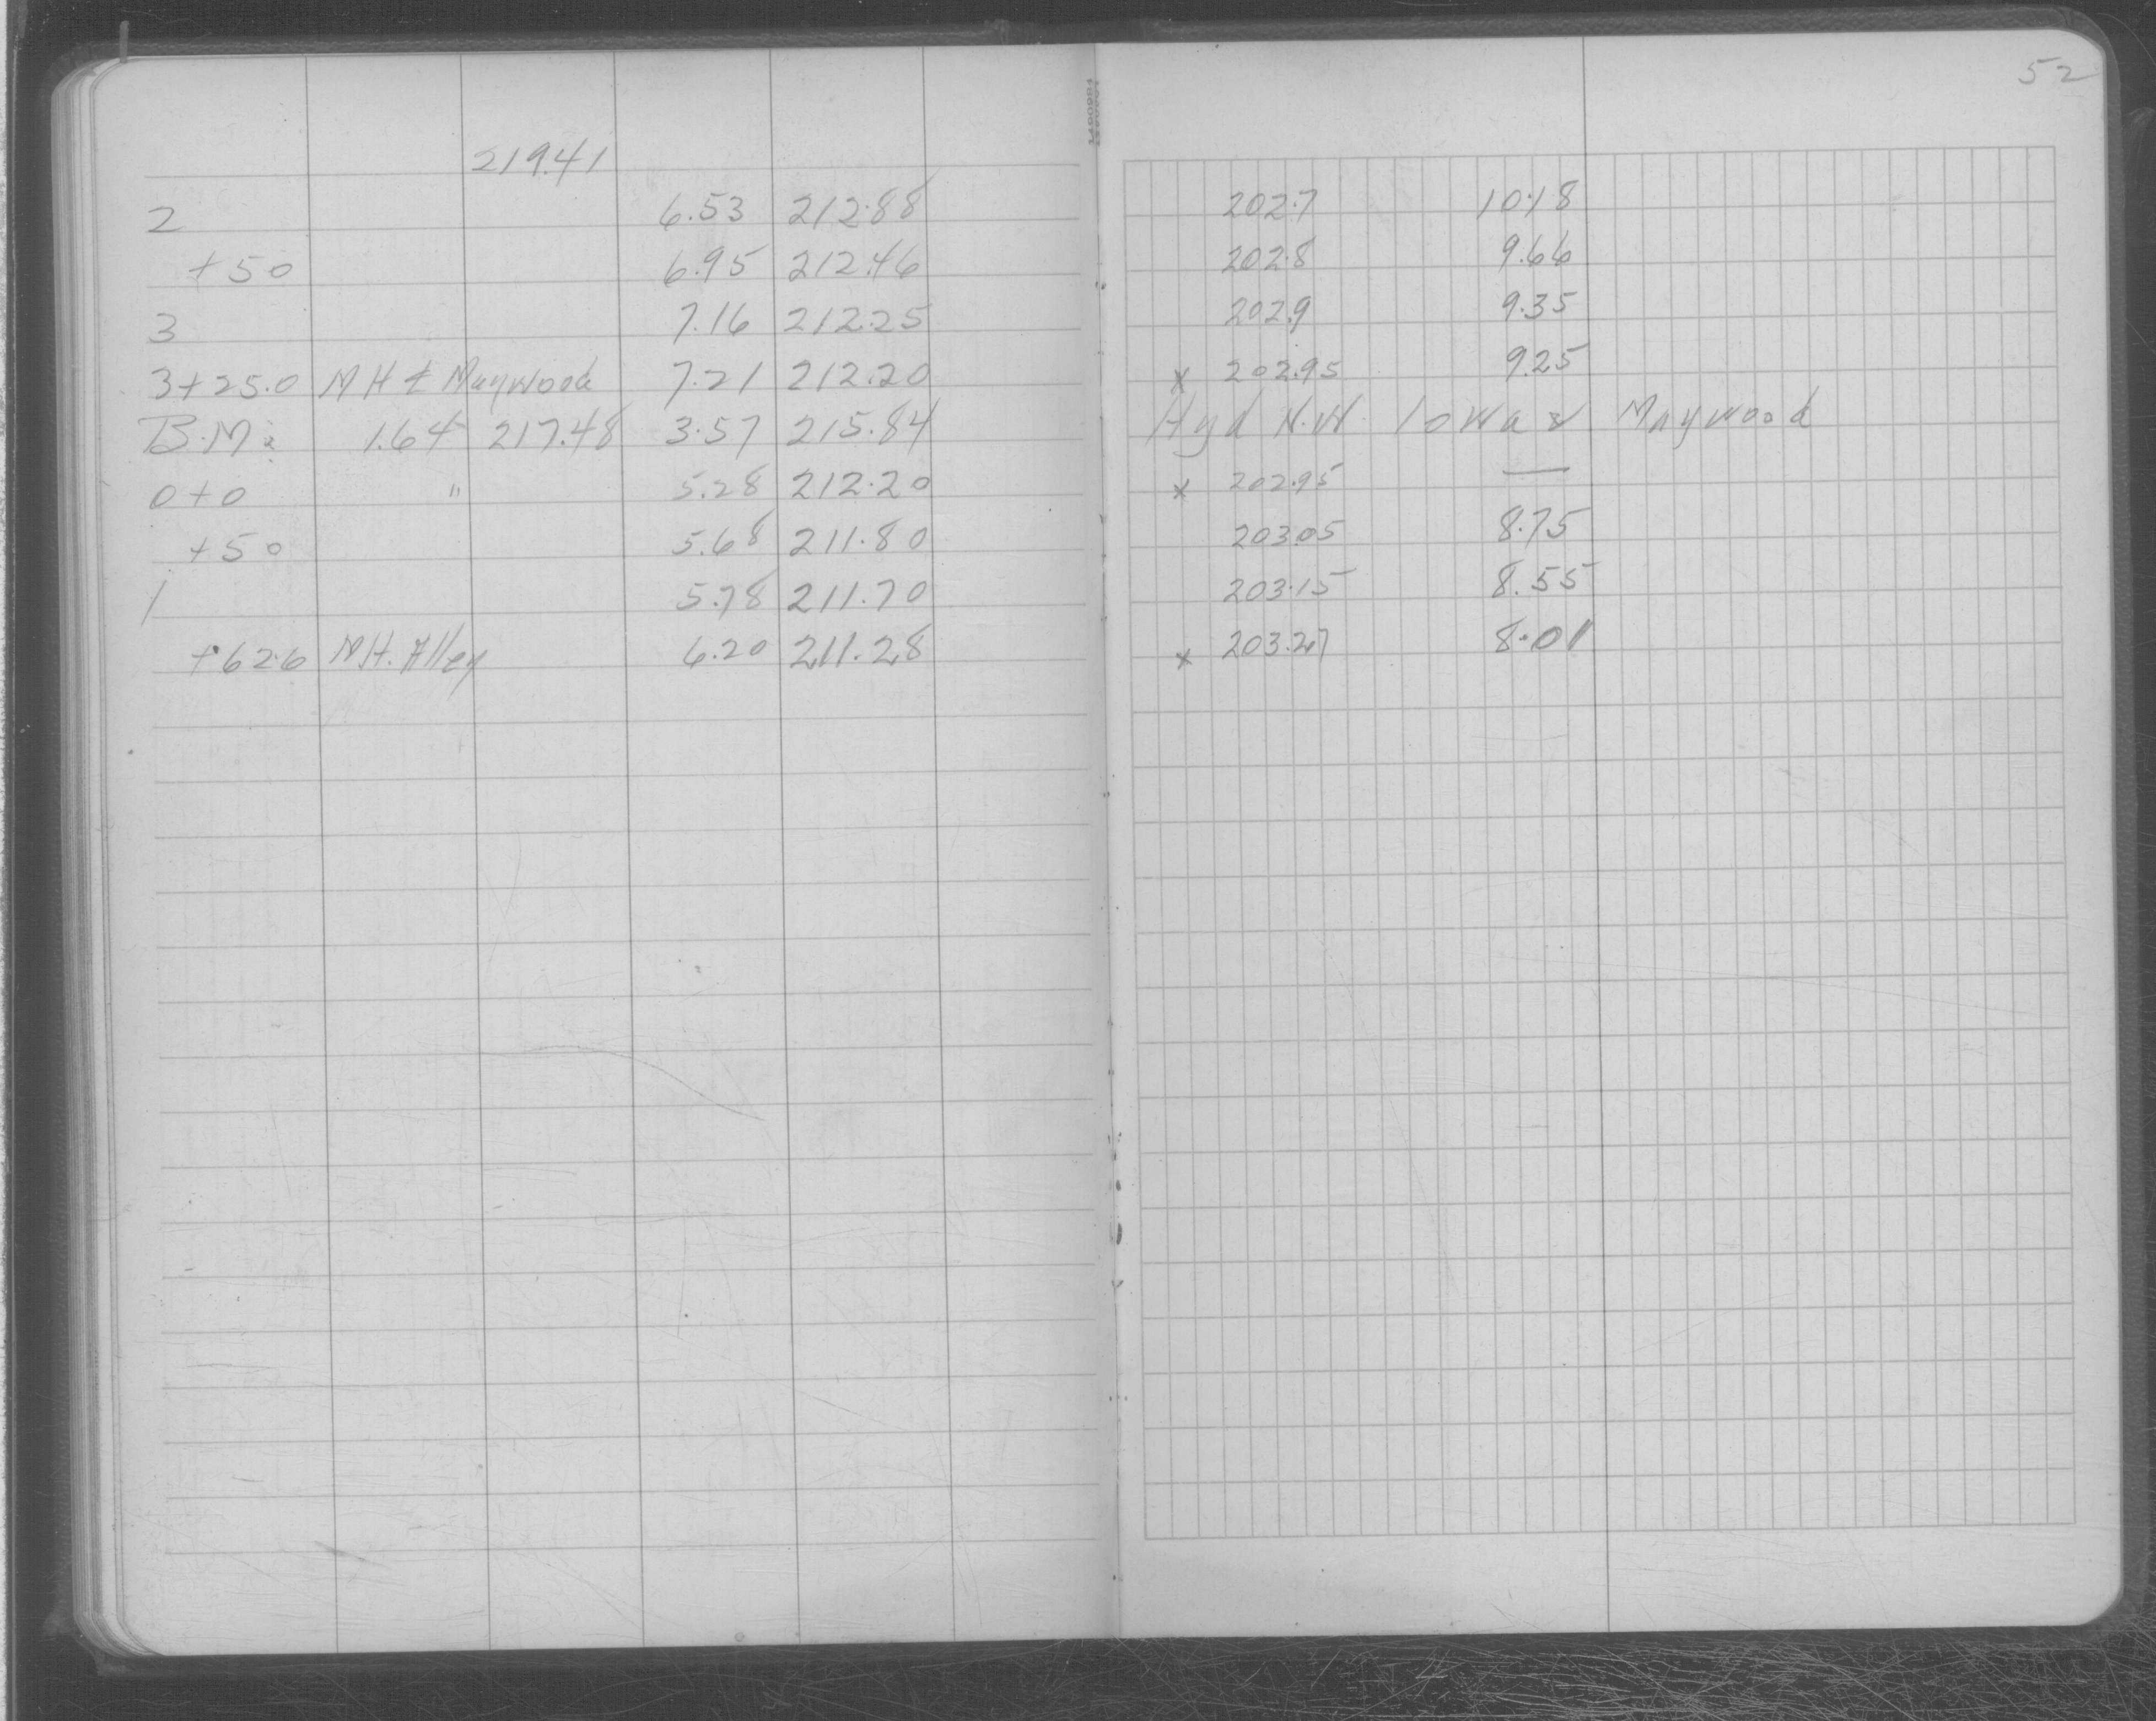 52
219.41
2 6.53 212.88 202.7 10.18
+50 6.95 212.46 202.8 9.66
3 7.16 212.25 202.9 9.35
3+25.0 M H ₵ Maywood 7.21 212.20 x 202.95 9.25
B.M. 1.64 217.48 3.57 215.84 Hyd N.W. Iowa & Maywood
0+0 " 5.28 212.20 x 202.95 —
+50 5.68 211.80 203.05 8.75
1 5.78 211.70 203.15 8.55
+62.6 M.H. Alley 6.20 211.28 x 203.27 8.01